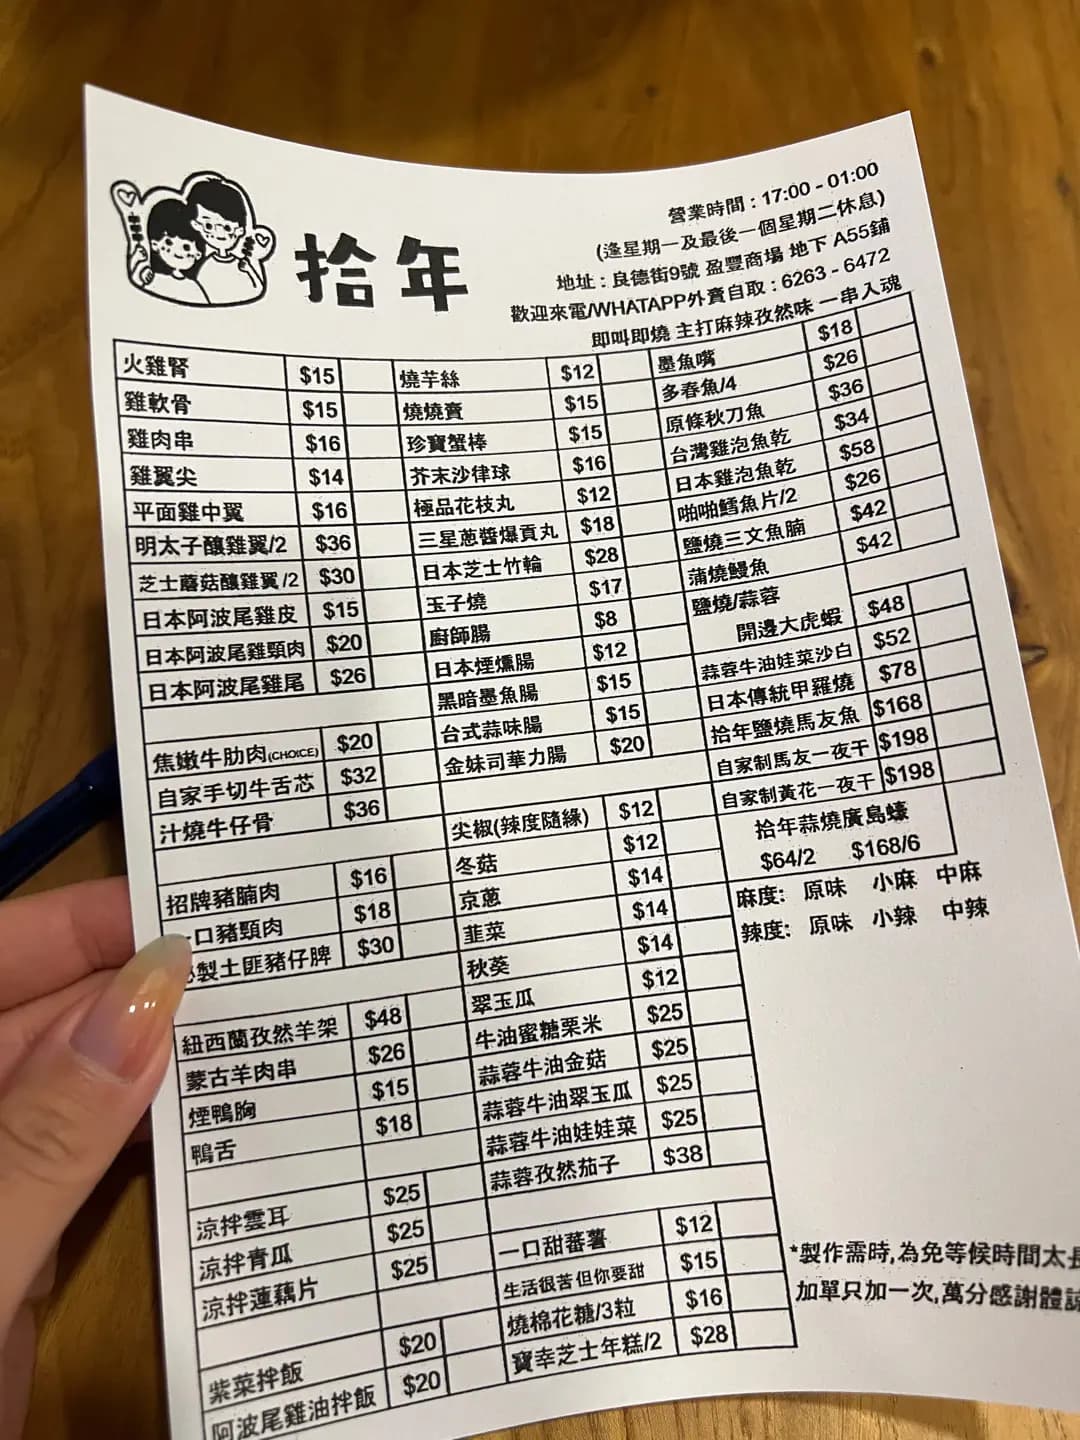 拾年
營業時間 : 17:00 - 01:00
(逢星期一及最後一個星期二休息)
地址 : 良德街9號 盈豐商場 地下 A55鋪
歡迎來電/WHATAPP外賣自取 : 6263 - 6472
即叫即燒 主打麻辣孜然味 一串入魂
火雞腎 $15
雞軟骨 $15
雞肉串 $16
雞翼尖 $14
平面雞中翼 $16
明太子釀雞翼/2 $36
芝士蘑菇釀雞翼/2 $30
日本阿波尾雞皮 $15
日本阿波尾雞頸肉 $20
日本阿波尾雞尾 $26
焦嫩牛肋肉(CHOICE) $20
自家手切牛舌芯 $32
汁燒牛仔骨 $36
招牌豬腩肉 $16
一口豬頸肉 $18
製土匪豬仔脾 $30
紐西蘭孜然羊架 $48
蒙古羊肉串 $26
煙鴨胸 $15
鴨舌 $18
涼拌雲耳 $25
涼拌青瓜 $25
涼拌蓮藕片 $25
紫菜拌飯 $20
阿波尾雞油拌飯 $20
燒芋絲 $12
燒燒賣 $15
珍寶蟹棒 $15
芥末沙律球 $16
極品花枝丸 $12
三星蔥醬爆貢丸 $18
日本芝士竹輪 $28
玉子燒 $17
廚師腸 $8
日本煙燻腸 $12
黑暗墨魚腸 $15
台式蒜味腸 $15
金妹司華力腸 $20
尖椒(辣度隨緣) $12
冬菇 $12
京蔥 $14
韭菜 $14
秋葵 $14
翠玉瓜 $12
牛油蜜糖栗米 $25
蒜蓉牛油金菇 $25
蒜蓉牛油翠玉瓜 $25
蒜蓉牛油娃娃菜 $25
蒜蓉孜然茄子 $38
一口甜蕃薯 $12
生活很苦但你要甜 $15
燒棉花糖/3粒 $16
寶幸芝士年糕/2 $28
墨魚嘴 $18
多春魚/4 $26
原條秋刀魚 $36
台灣雞泡魚乾 $34
日本雞泡魚乾 $58
啪啪鱈魚片/2 $26
鹽燒三文魚腩 $42
蒲燒鰻魚 $42
鹽燒/蒜蓉
開邊大虎蝦 $48
蒜蓉牛油娃菜沙白 $52
日本傳統甲羅燒 $78
拾年鹽燒馬友魚 $168
自家制馬友一夜干 $198
自家制黃花一夜干 $198
拾年蒜燒廣島蠔
$64/2 $168/6
麻度: 原味 小麻 中麻
辣度: 原味 小辣 中辣
*製作需時,為免等候時間太長
加單只加一次,萬分感謝體諒